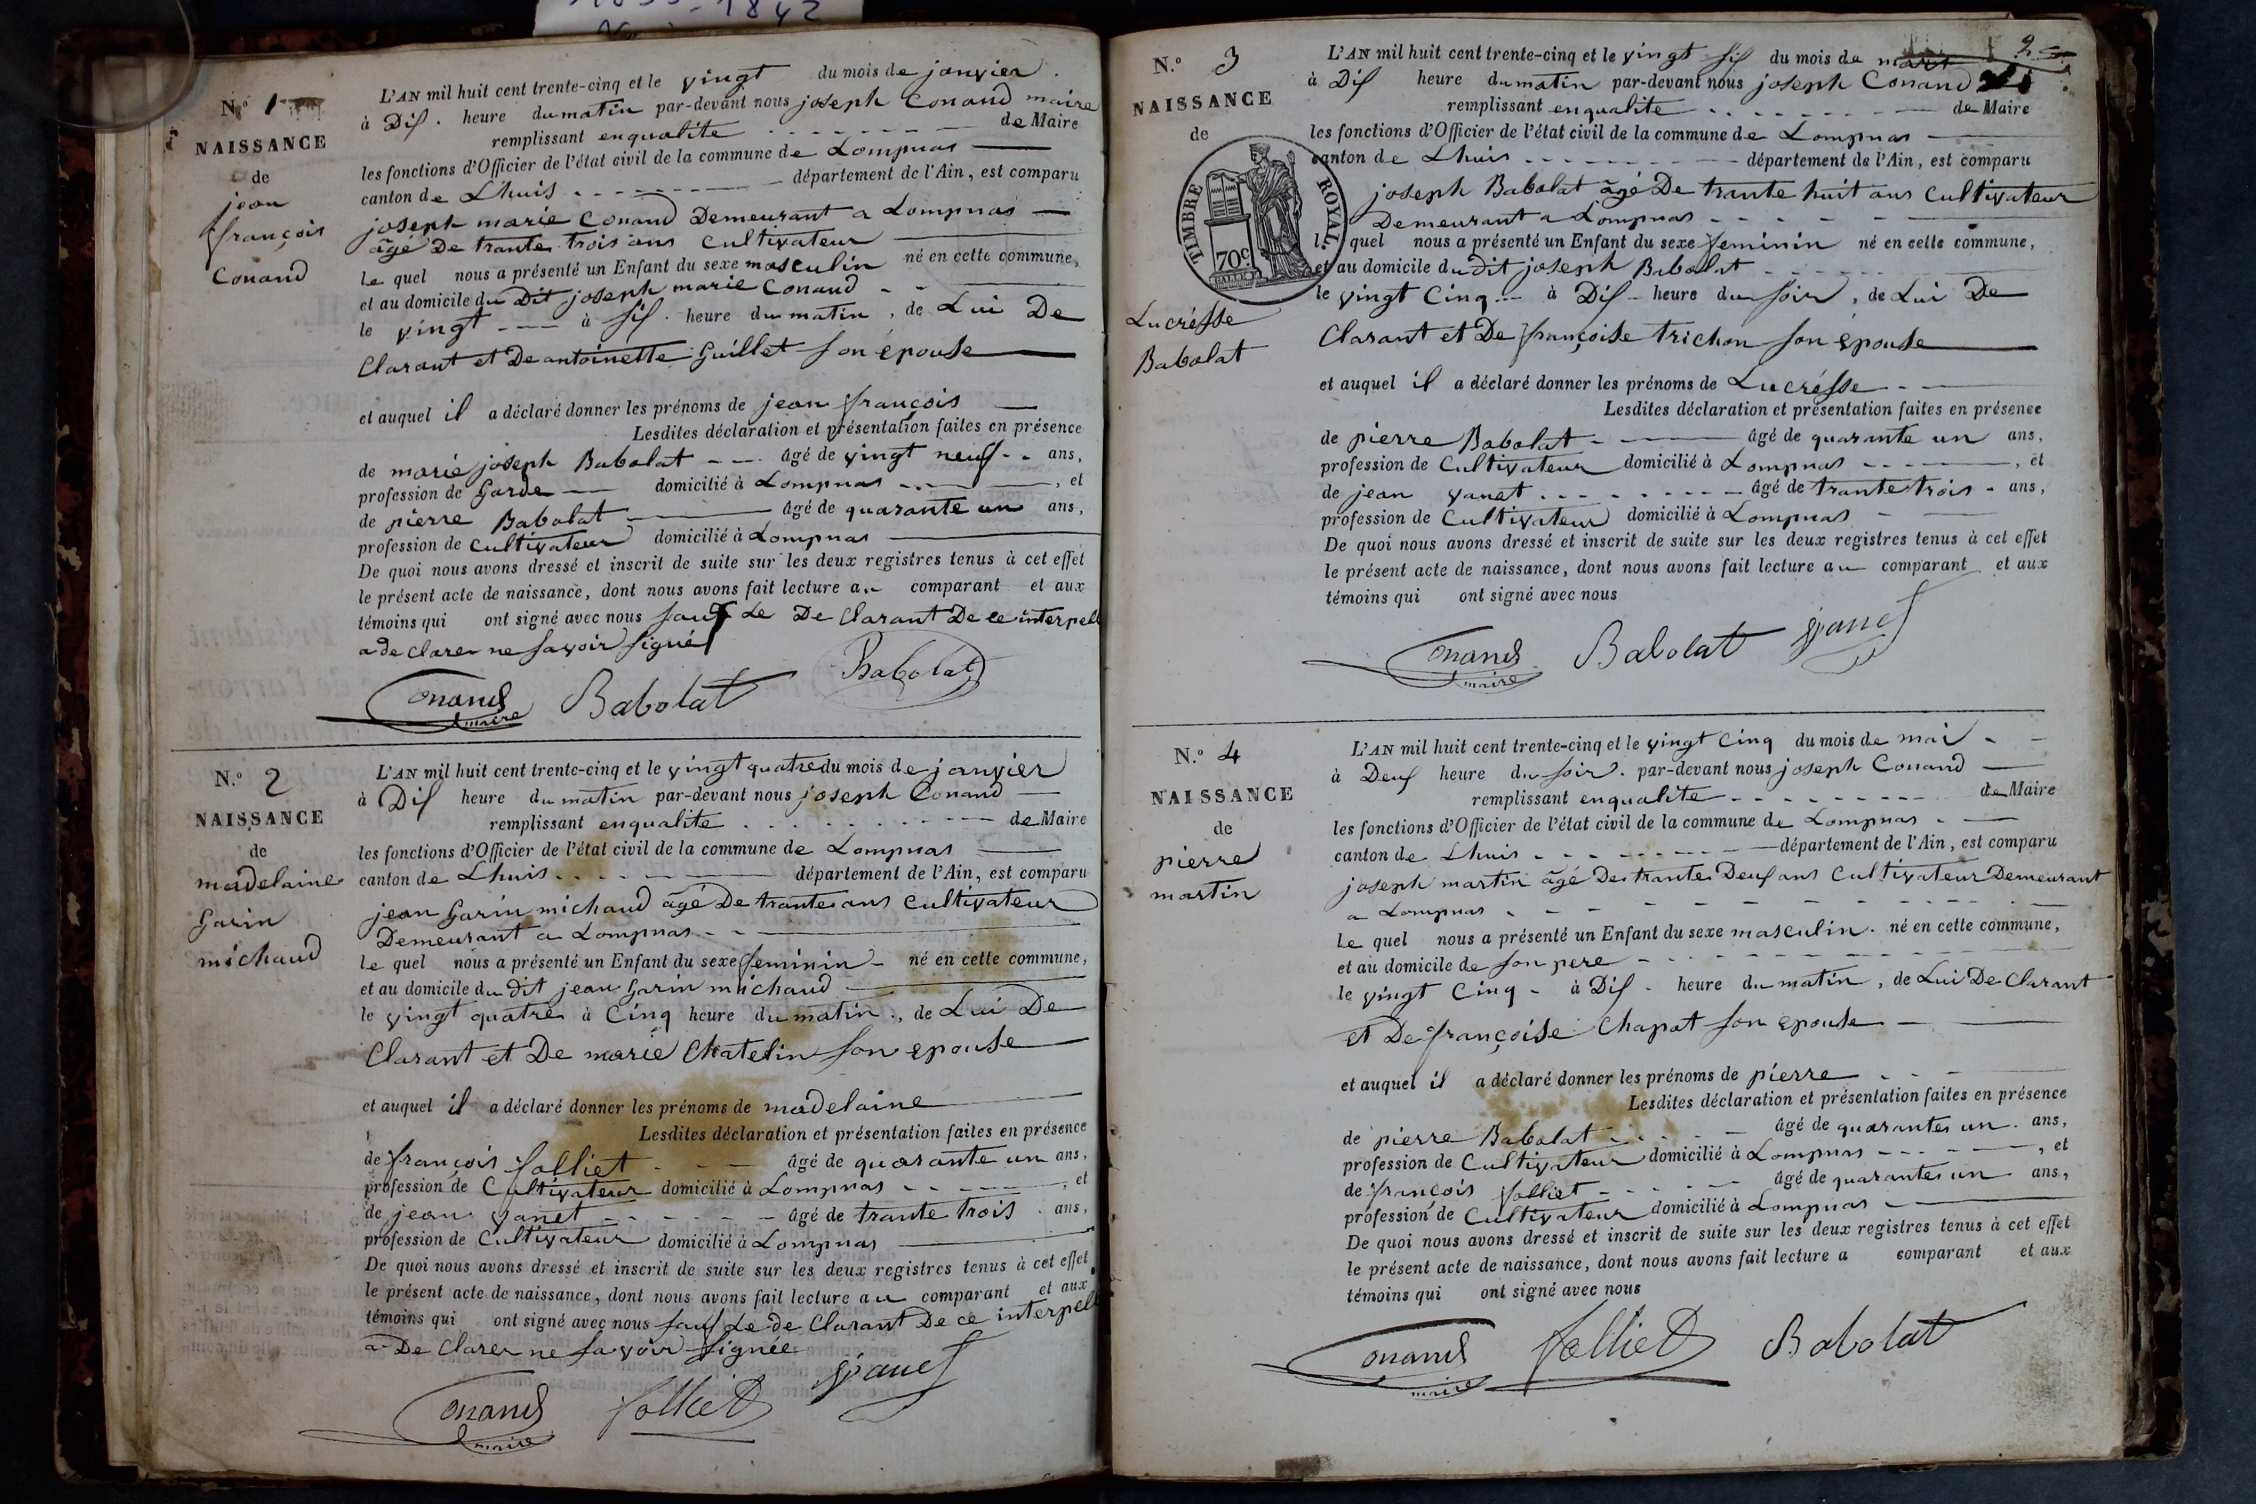 1835-1842
N.o 1
NAISSANCE
de
jean
françois
Conand
L'AN mil huit cent trente-cinq et le vingt du mois de janvier
à Dis heure du matin par-devant nous joseph Conand maire
remplissant enqualite de Maire
les fonctions d'Officier de l'état civil de la commune de Lompnas
canton de Lhuis département de l'Ain, est comparu
joseph marie Conand Demeurant a Lompnas
âgé De trante trois ans Cultivateur
le quel nous a présenté un Enfant du sexe masculin né en cette commune,
et au domicile du Dit joseph marie Conand
le vingt à sis heure du matin, de Lui De
Clarant et De antoinette Guillet son épouse
et auquel il a déclaré donner les prénoms de jean françois
Lesdites déclaration et présentation faites en présence
de marie joseph Babolat âgé de vingt neuf ans,
profession de Garde domicilié à Lompnas, et
de pierre Babolat âgé de quarante un ans,
profession de Cultivateur domicilié à Lompnas
De quoi nous avons dressé et inscrit de suite sur les deux registres tenus à cet effet
le présent acte de naissance, dont nous avons fait lecture au comparant et aux
témoins qui ont signé avec nous sauf Le De Clarant De ce interpell
a de clarer ne savoir signé
Conand Babolat Babolat
maire
N.o 2
NAISSANCE
de
madelaine
Garin
michaud
L'AN mil huit cent trente-cinq et le vingt quatre du mois de janvier
à Dis heure du matin par-devant nous joseph Conand
remplissant enqualite de Maire
les fonctions d'Officier de l'état civil de la commune de Lompnas
canton de Lhuis département de l'Ain, est comparu
jean Garin michaud âgé De trante ans Cultivateur
Demeurant a Lompnas
le quel nous a présenté un Enfant du sexe feminin né en cette commune,
et au domicile du dit jean Garin michaud
le vingt quatre à Cinq heure du matin, de Lui De
Clarant et De marie Chatelin son epouse
et auquel il a déclaré donner les prénoms de madelaine
Lesdites déclaration et présentation faites en présence
de françois folliet âgé de quarante un ans,
profession de Cultivateur domicilié à Lompnas, et
de jean yanet âgé de trante trois ans,
profession de Cultivateur domicilié à Lompnas
De quoi nous avons dressé et inscrit de suite sur les deux registres tenus à cet effet
le présent acte de naissance, dont nous avons fait lecture au comparant et aux
témoins qui ont signé avec nous sauf Le de Clarant De ce interpell
a De Clarer ne savoir signée
Conand folliet yanet
maire
2
N.o 3
NAISSANCE
de
TIMBRE ROYAL.
70c.
Lucrésse
Babolat
L'AN mil huit cent trente-cinq et le vingt sis du mois de mars
à Dis heure du matin par-devant nous joseph Conand
remplissant enqualite de Maire
les fonctions d'Officier de l'état civil de la commune de Lompnas
canton de Lhuis département de l'Ain, est comparu
joseph Babolat âgé De trante huit ans Cultivateur
Demeurant a Lompnas
l quel nous a présenté un Enfant du sexe feminin né en cette commune,
et au domicile du dit joseph Babolat
le vingt Cinq à Dis heure du soir, de Lui De
Clarant et De françoise trichon son épouse
et auquel il a déclaré donner les prénoms de Lucrésse
Lesdites déclaration et présentation faites en présence
de pierre Babolat âgé de quarante un ans,
profession de Cultivateur domicilié à Lompnas, et
de jean yanet âgé de trante trois ans,
profession de Cultivateur domicilié à Lompnas
De quoi nous avons dressé et inscrit de suite sur les deux registres tenus à cet effet
le présent acte de naissance, dont nous avons fait lecture au comparant et aux
témoins qui ont signé avec nous
Conand Babolat yanet
maire
N.o 4
NAISSANCE
de
pierre
martin
L'AN mil huit cent trente-cinq et le vingt Cinq du mois de mai
à Deus heure du soir par-devant nous joseph Conand
remplissant enqualite de Maire
les fonctions d'Officier de l'état civil de la commune de Lompnas
canton de Lhuis département de l'Ain, est comparu
joseph martin âgé De trante Deus ans Cultivateur Demeurant
a Lompnas
le quel nous a présenté un Enfant du sexe masculin né en cette commune,
et au domicile de son pere
le vingt Cinq à Dis heure du matin, de Lui De Clarant
et De françoise Chapot son epouse
et auquel il a déclaré donner les prénoms de pierre
Lesdites déclaration et présentation faites en présence
de pierre Babolat âgé de quarante un ans,
profession de Cultivateur domicilié à Lompnas, et
de françois folliet âgé de quarante un ans,
profession de Cultivateur domicilié à Lompnas
De quoi nous avons dressé et inscrit de suite sur les deux registres tenus à cet effet
le présent acte de naissance, dont nous avons fait lecture a comparant et aux
témoins qui ont signé avec nous
Conand folliet Babolat
maire